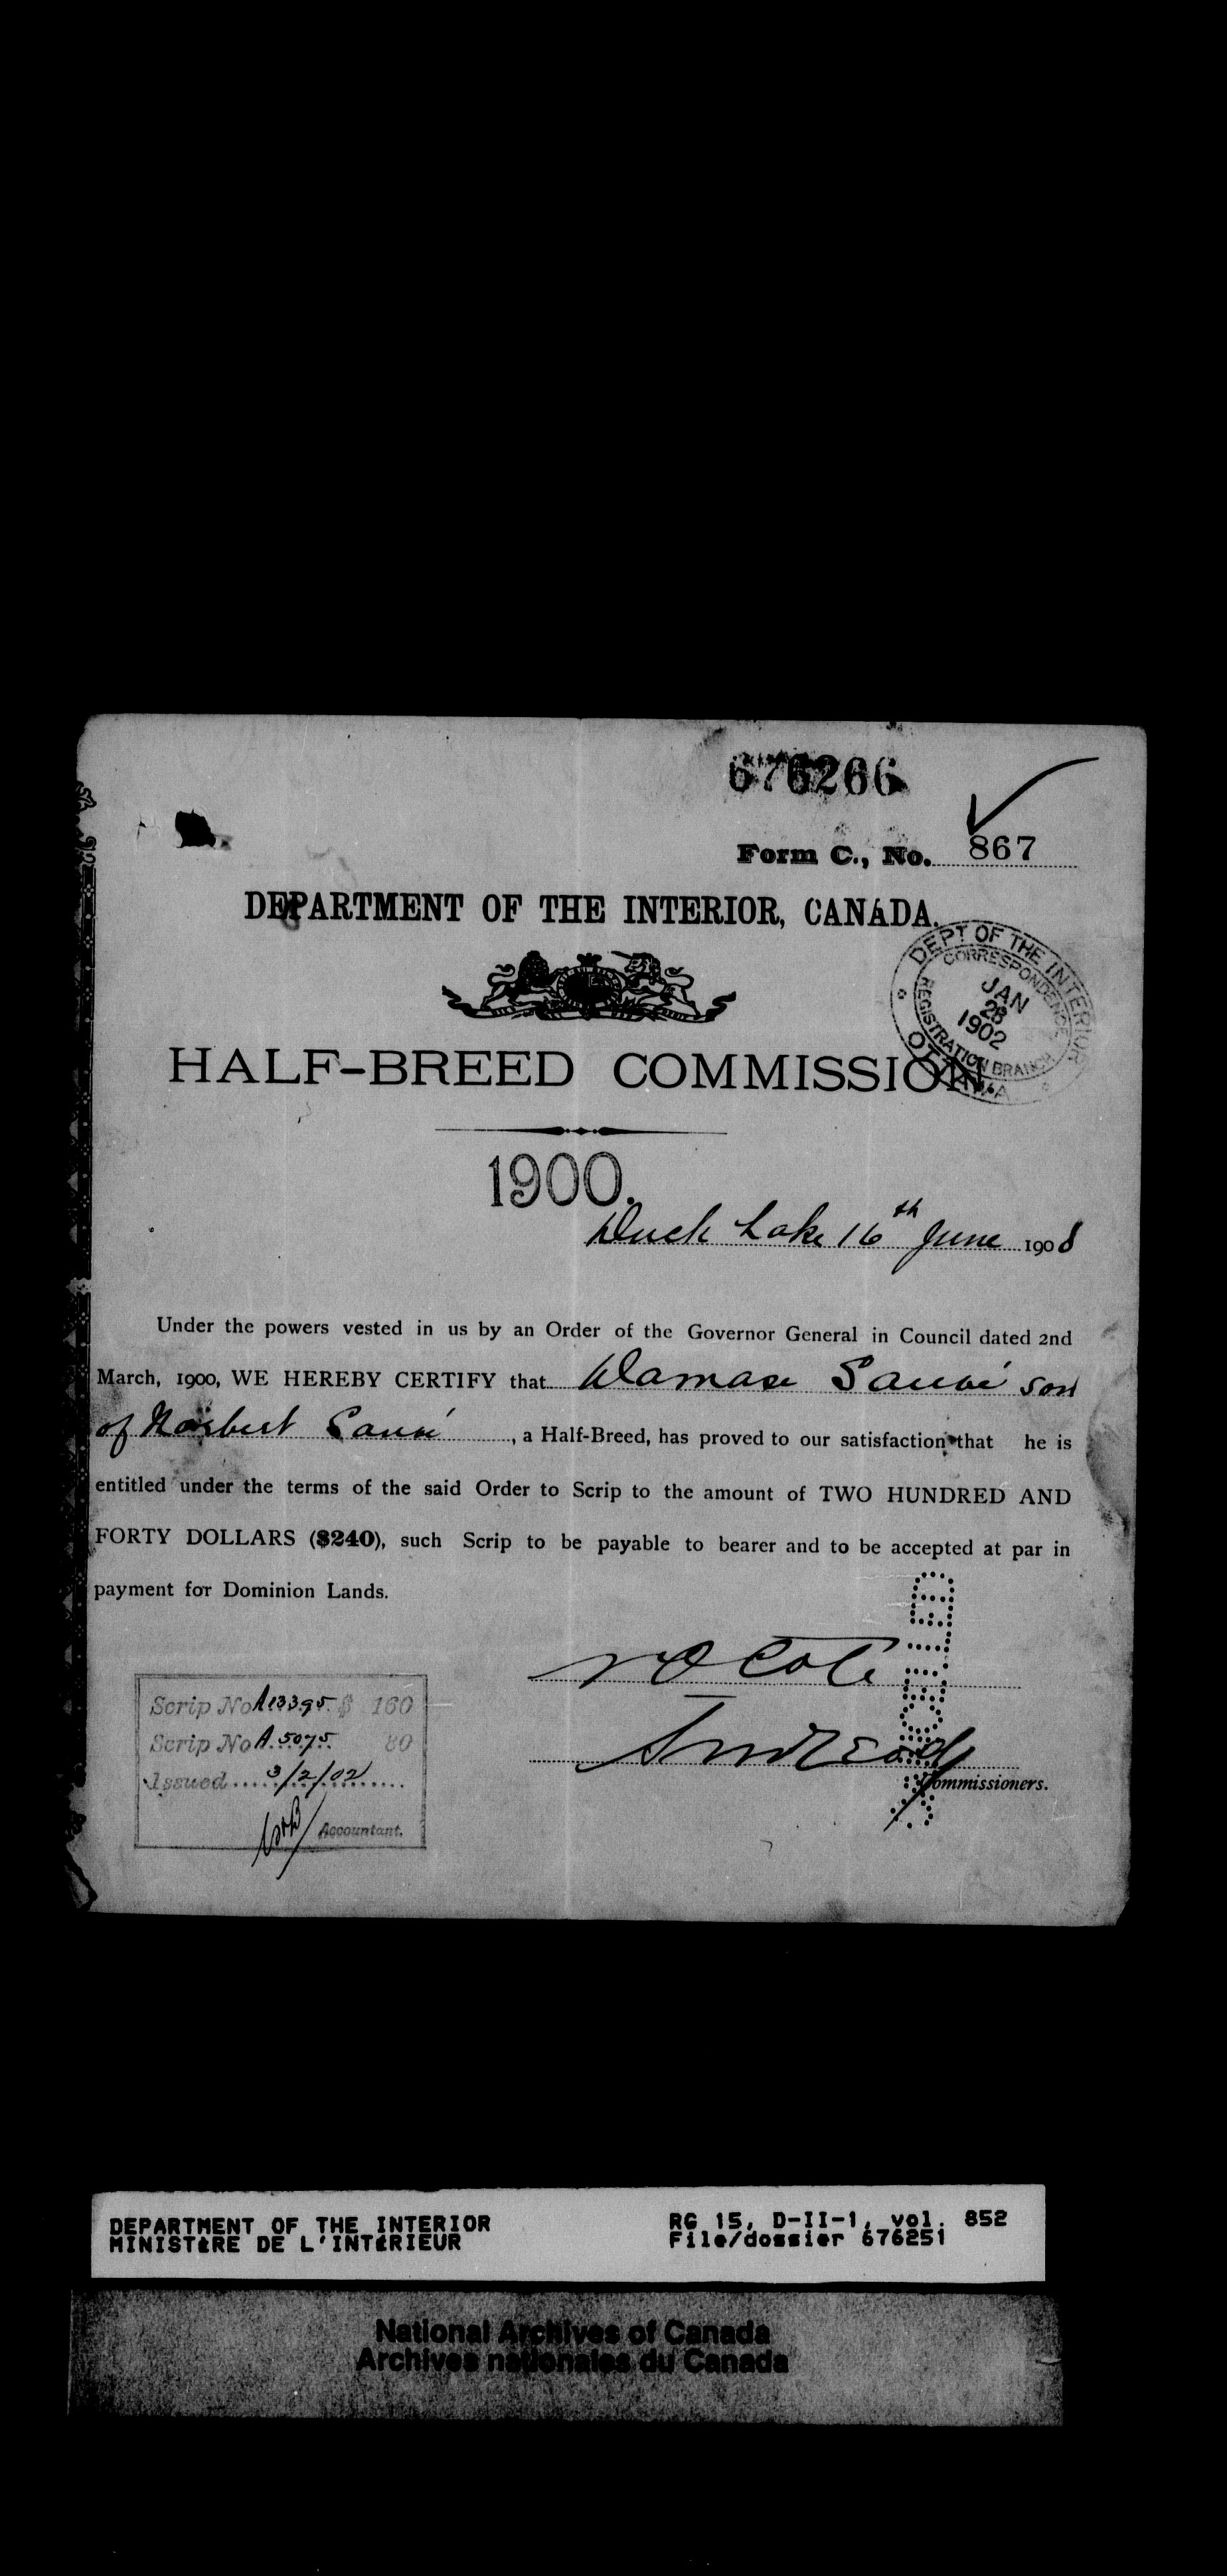 676266
Form C., No. 867
DEPARTMENT OF THE INTERIOR, CANADA.
DEPT OF THE INTERIOR
CORRESPONDENCE
JAN
28
1902
REGISTRATION BRANCH
OTTAWA
HALF-BREED COMMISSION.
1900.
Duck Lake 16th June 1900
Under the powers vested in us by an Order of the Governor General in Council dated 2nd
March, 1900, WE HEREBY CERTIFY that Damase Sauvé son
of Norbert Sauvé, a Half-Breed, has proved to our satisfaction that he is
entitled under the terms of the said Order to Scrip to the amount of TWO HUNDRED AND
FORTY DOLLARS ($240), such Scrip to be payable to bearer and to be accepted at par in
payment for Dominion Lands.
Coté
Commissioners.
Scrip No A13395 $ 160
Scrip No A.5075 80
Issued 3/2/02
Accountant.
DEPARTMENT OF THE INTERIOR
MINISTÈRE DE L'INTÉRIEUR
RG 15, D-II-1, vol. 852
File/dossier 676251
National Archives of Canada
Archives nationales du Canada